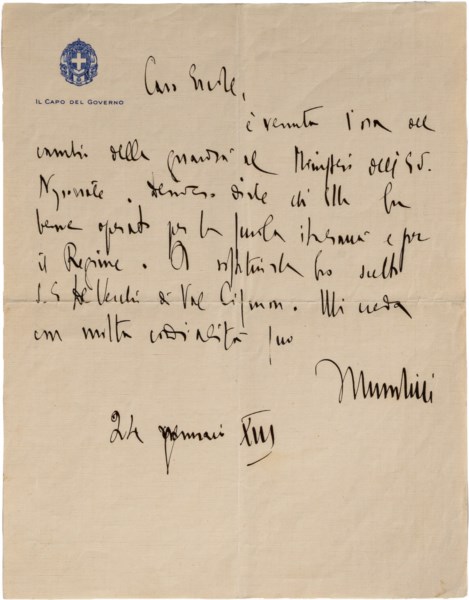 IL CAPO DEL GOVERNO
Caro Ercole,
è venuta l'ora del
cambio della guardia al Ministero dell'Ed.
Nazionale. Desidero dirle che Ella ha
bene operato per la Scuola italiana e per
il Regime. A sostituirla ho scelto
S.E. De Vecchi di Val Cismon. Mi creda
con molta cordialità suo
Mussolini
24 gennaio XIII